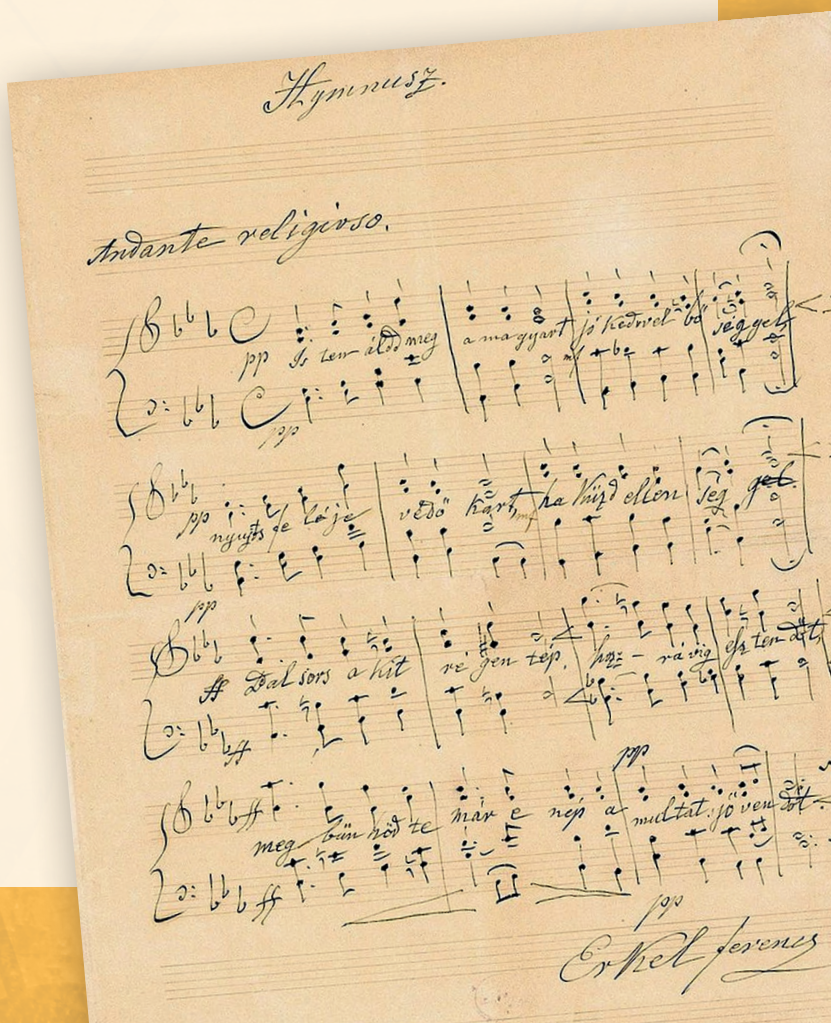 Hymnusz.
Andante religioso.
pp Is ten áldd meg a magyart mf jó kedvvel bő séggel
pp
pp nyujts fe léje védő kart, mf ha küzd ellen ség gel.
pp
ff Bal sors a kit ré gen tép, hoz - rá víg esz ten dőt,
ff
pp
ff meg bün hőd te már e nép a multat jövendőt
ff
pp
Erkel ferencz